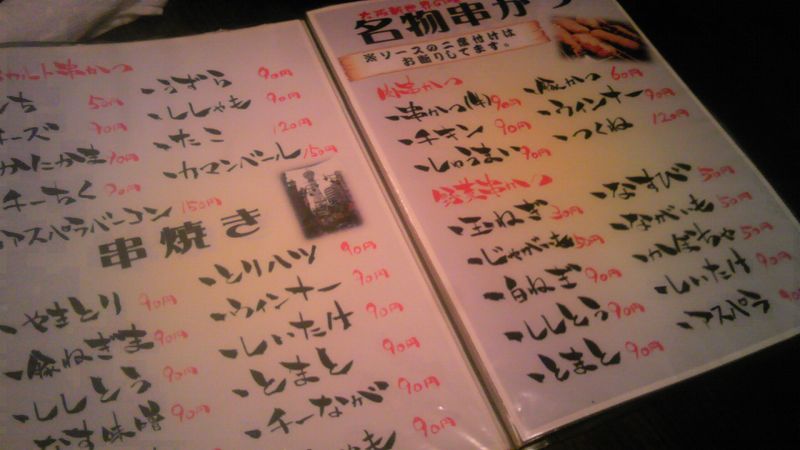 カルト串かつ
うずら 90円
50円
ししゃも 90円
チーズ 90円
たこ 120円
かにかま 90円
カマンベール 150円
チーちく 90円
アスパラベーコン 150円
串焼き
とりハツ 90円
やきとり 90円
ウインナー 90円
豚ねぎま 90円
しいたけ 90円
ししとう 90円
とまと 90円
なす味噌 90円
チーなが 90円
90円
名物串かつ
※ソースの二度付けは
お断りしてます。
肉串かつ
豚かつ 60円
串かつ(牛) 90円
ウインナー 90円
チキン 90円
つくね 120円
しゅうまい 90円
野菜串かつ
なすび 50円
玉ねぎ 50円
ながいも 50円
じゃがいも 50円
かぼちゃ 50円
白ねぎ 90円
しいたけ 90円
ししとう 90円
アスパラ 90円
とまと 90円